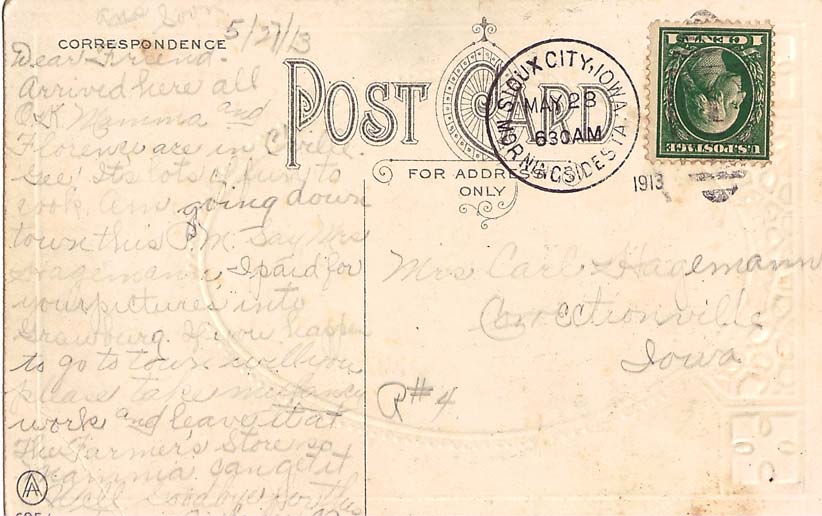 Ans Soon
5/27/13
CORRESPONDENCE
Dear Friend.
Arrived here all
O.K. Mamma and
Florence are in C'ville.
Gee! Its lots of fun to
cook. Am going down
town this P.M. Say Mrs
Hagemann, I paid for
your pictures into
If you happen
to go to town will you
please take my fancy
work and leave it at
The Farmer's Store so
Mamma can get it
Well Goodbye for this
POST CARD
FOR ADDRESS
ONLY
SIOUX CITY, IOWA.
MAY 28
630AM
MORNINGSIDE STA.
1913
1 CENT 1
U.S. POSTAGE
Mrs Carl Hagemann
Correctionville
Iowa
R#4
AA